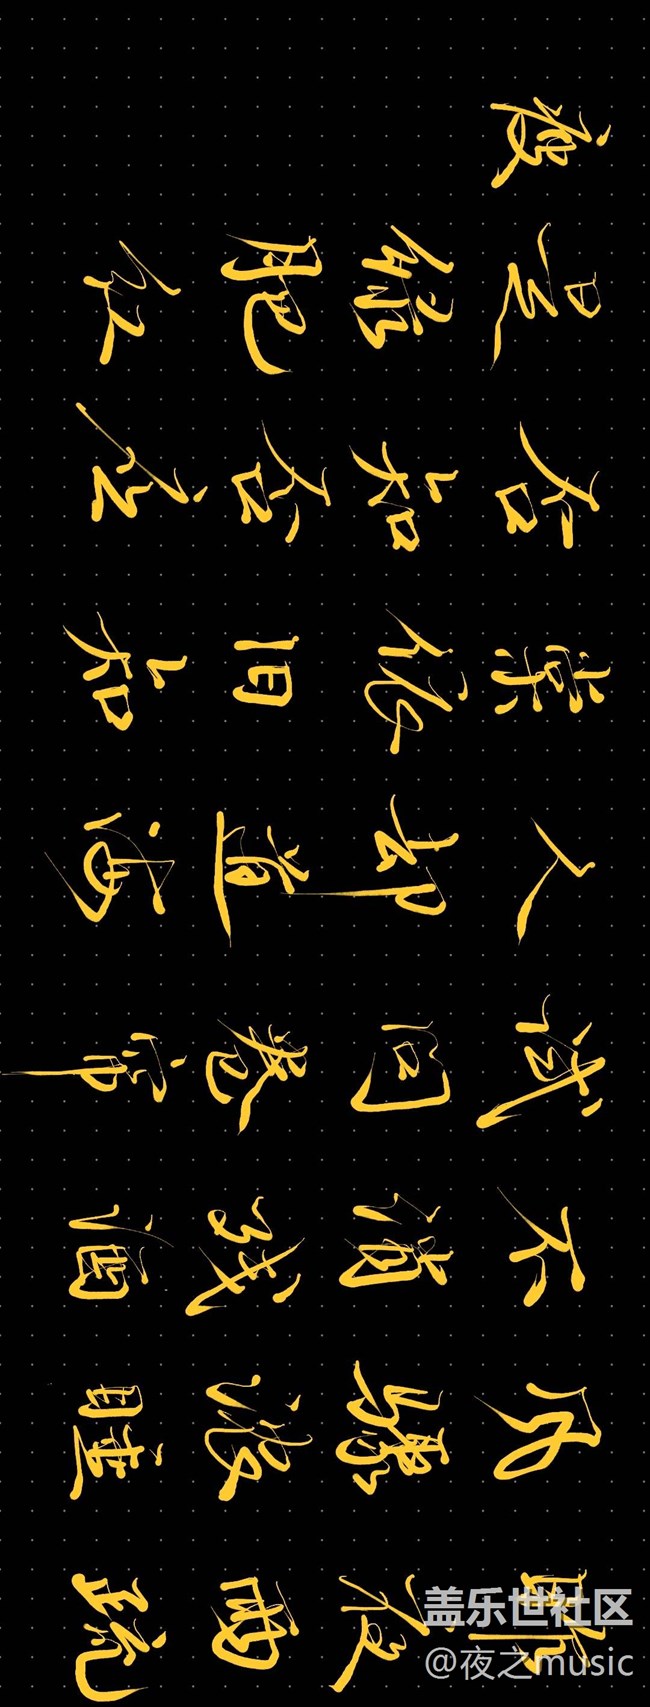 昨夜雨疏
风骤浓睡
不消残酒
试问卷帘
人却道海
棠依旧知
否知否应
是绿肥红
瘦
盖乐世社区
@夜之music